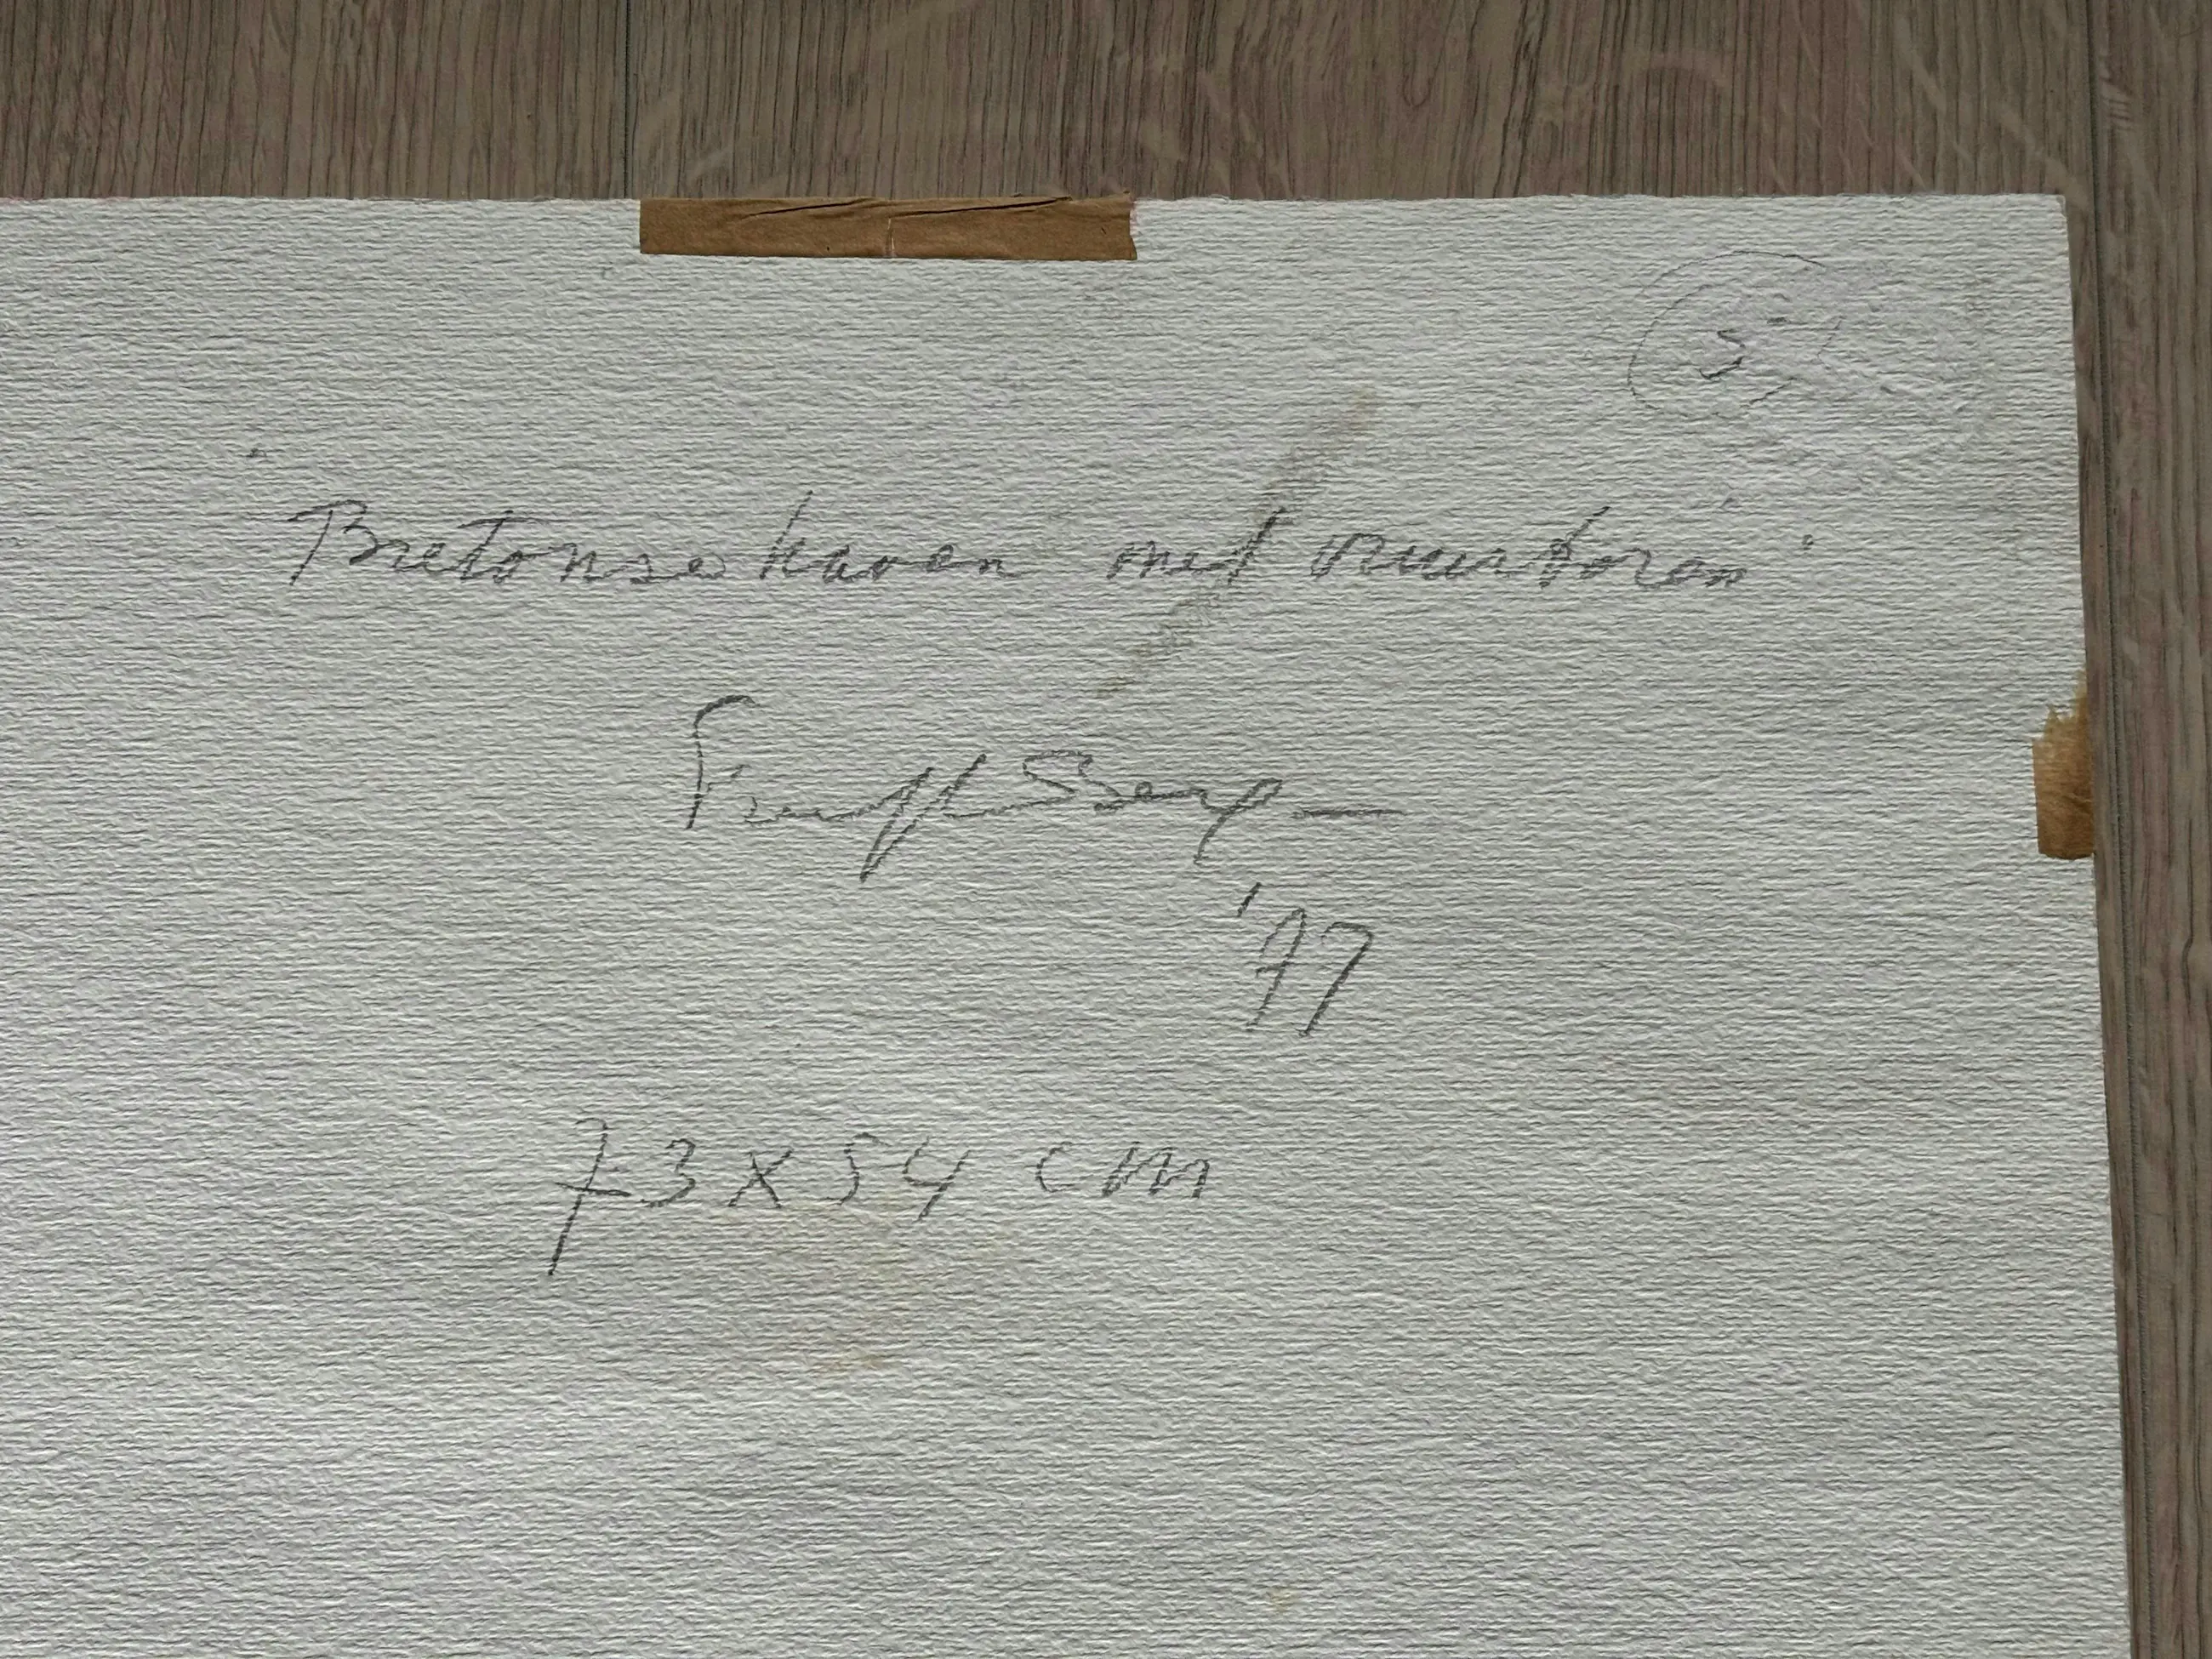 5
"Bretonse haven met vuurtoren"
'77
73 x 54 cm